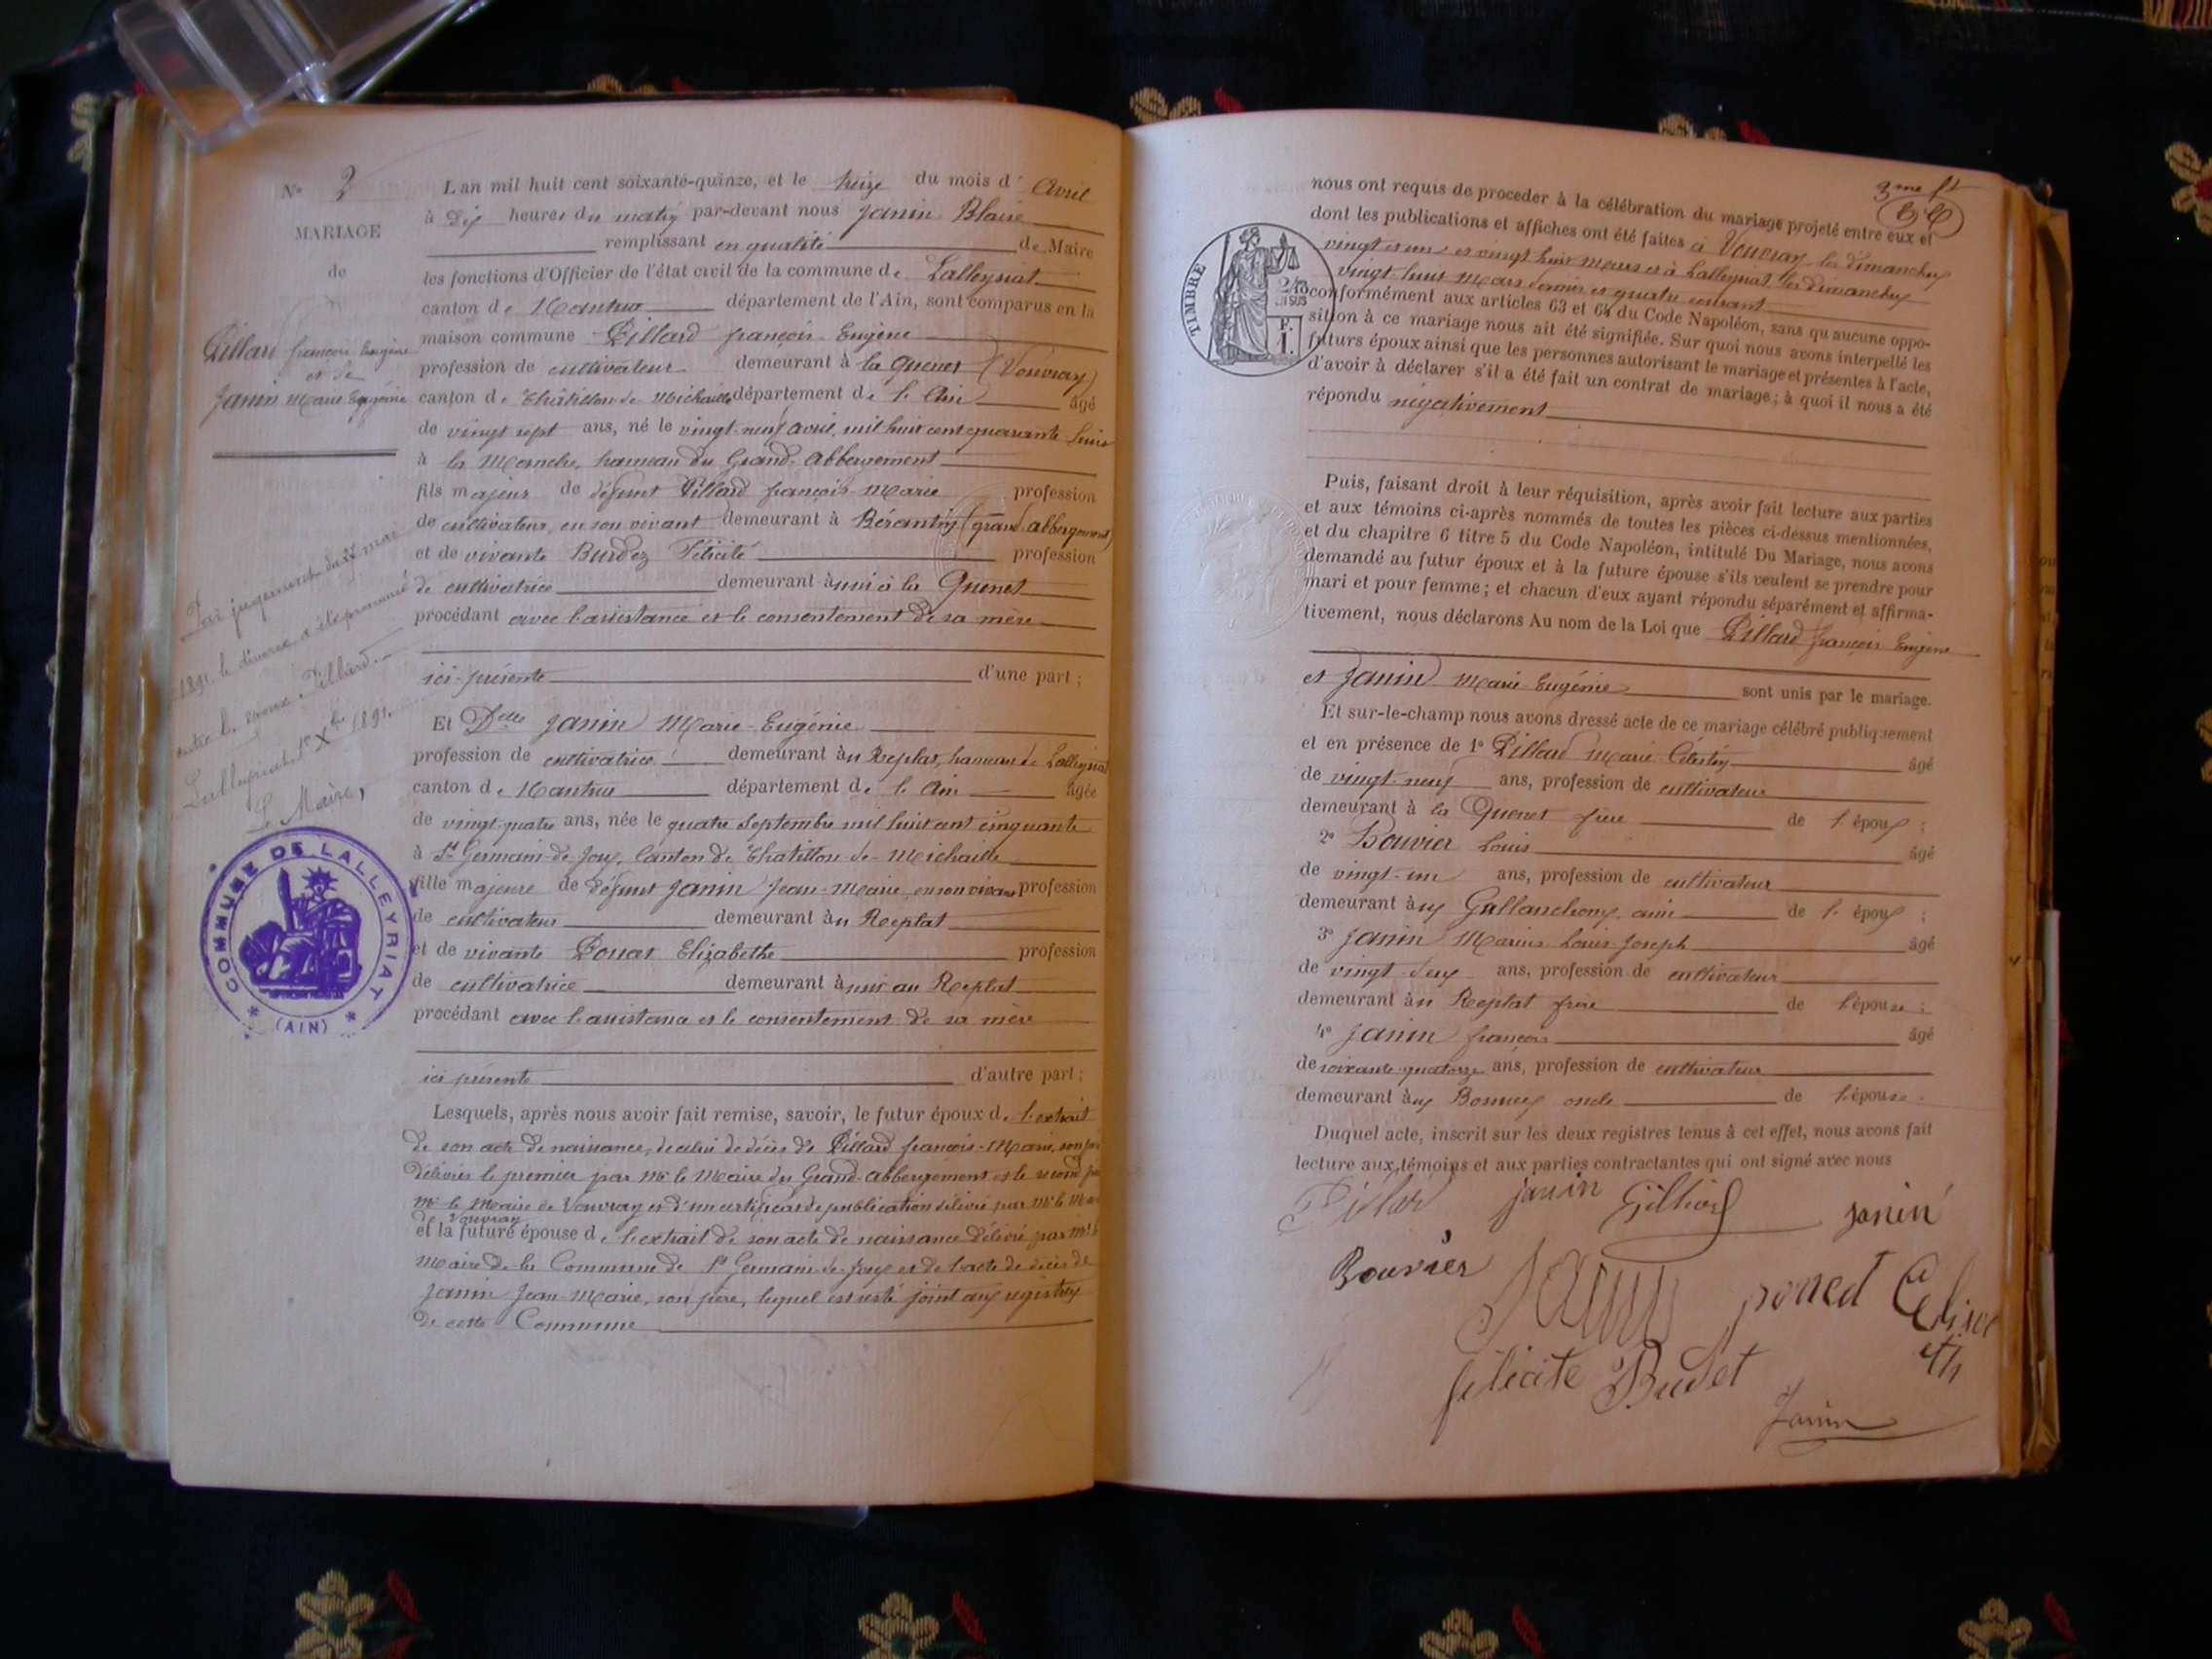 N° 2
MARIAGE
de
Pillard françois Eugène
et de
Janin Marie Eugénie
Par jugement du mai
1891 le divorce a été prononcé
entre les époux Pillard.
Lalleyriat 1er Xbre 1891.
Le Maire,
COMMUNE DE LALLEYRIAT
(AIN)
L'an mil huit cent soixante-quinze, et le treize du mois d' Avril
à Dix heures du matin par-devant nous Janin Blaise
remplissant en qualité de Maire
les fonctions d'Officier de l'état civil de la commune de Lalleyriat
canton de Nantua département de l'Ain, sont comparus en la
maison commune Pillard françois-Eugène
profession de cultivateur demeurant à la Quenet (Vouvray)
canton de Châtillon-de-Michaille département de l'Ain âgé
de vingt sept ans, né le vingt-neuf avril, mil huit cent quarante-huit
à la hameau du Grand-Abbergement
fils majeur de défunt Pillard françois-Marie profession
de cultivateur, en son vivant demeurant à (grand abbergement)
et de vivante Burdez Félicité profession
de cultivatrice demeurant à aussi à la Quenet
procédant avec l'assistance et le consentement de sa mère
ici-présente d'une part ;
Et Delle Janin Marie-Eugénie
profession de cultivatrice demeurant àu Replat, hameau de Lalleyriat
canton de Nantua département de l'Ain âgée
de vingt-quatre ans, née le quatre Septembre mil huit cent cinquante
à St Germain-de-Joux, Canton de Châtillon-de-Michaille
fille majeure de défunt Janin Jean-Marie, en son vivant profession
de cultivateur demeurant àu Replat
et de vivante Ponet Elizabethe profession
de cultivatrice demeurant à aussi au Replat
procédant avec l'assistance et le consentement de sa mère
ici présente d'autre part ;
Lesquels, après nous avoir fait remise, savoir, le futur époux de l'extrait
de son acte de naissance, de celui de décès de Pillard françois-Marie, son père
délivrés le premier par Mr le Maire du Grand-Abbergement et le second par
Mr le Maire de Vouvray et d'un certificat de publication délivré par Mr le Maire
de Vouvray
et la future épouse de l'extrait de son acte de naissance délivré par Mr le
Maire de la Commune de St Germain-de-Joux et de l'acte de décès de
Janin Jean-Marie, son père, lequel est resté joint aux régistres
de cette Commune
3me ft
TIMBRE
2/10 EN SUS
F. 1.
nous ont requis de proceder à la célébration du mariage projeté entre eux et
dont les publications et affiches ont été faites à Vouvray les dimanches
vingt et un et vingt huit mars et à Lalleyriat les dimanches
vingt-huit Mars dernier et quatre courant
conformément aux articles 63 et 64 du Code Napoléon, sans qu'aucune oppo-
sition à ce mariage nous ait été signifiée. Sur quoi nous avons interpellé les
futurs époux ainsi que les personnes autorisant le mariage et présentes à l'acte,
d'avoir à déclarer s'il a été fait un contrat de mariage ; à quoi il nous a été
répondu négativement
Puis, faisant droit à leur réquisition, après avoir fait lecture aux parties
et aux témoins ci-après nommés de toutes les pièces ci-dessus mentionnées,
et du chapitre 6 titre 5 du Code Napoléon, intitulé Du Mariage, nous avons
demandé au futur époux et à la future épouse s'ils veulent se prendre pour
mari et pour femme ; et chacun d'eux ayant répondu séparément et affirma-
tivement, nous déclarons Au nom de la Loi que Pillard françois Eugène
et Janin Marie-Eugénie sont unis par le mariage.
Et sur-le-champ nous avons dressé acte de ce mariage célébré publiquement
et en présence de 1° Pillard Marie Célestin âgé
de vingt-neuf ans, profession de cultivateur
demeurant à la Quenet frère de l'époux ;
2° Bouvier Louis âgé
de vingt-un ans, profession de cultivateur
demeurant àux Gallanchons, ami de l'époux ;
3° Janin Marius Louis Joseph âgé
de vingt-deux ans, profession de cultivateur
demeurant àu Replat frère de l'épouse ;
4° Janin françois âgé
de soixante-quatorze ans, profession de cultivateur
demeurant àux oncle de l'épouse.
Duquel acte, inscrit sur les deux registres tenus à cet effet, nous avons fait
lecture aux témoins et aux parties contractantes qui ont signé avec nous
Pillard janin Pilliard janin
Bouvier Janin ponet Elisa
eth
félicité Budet
Janin